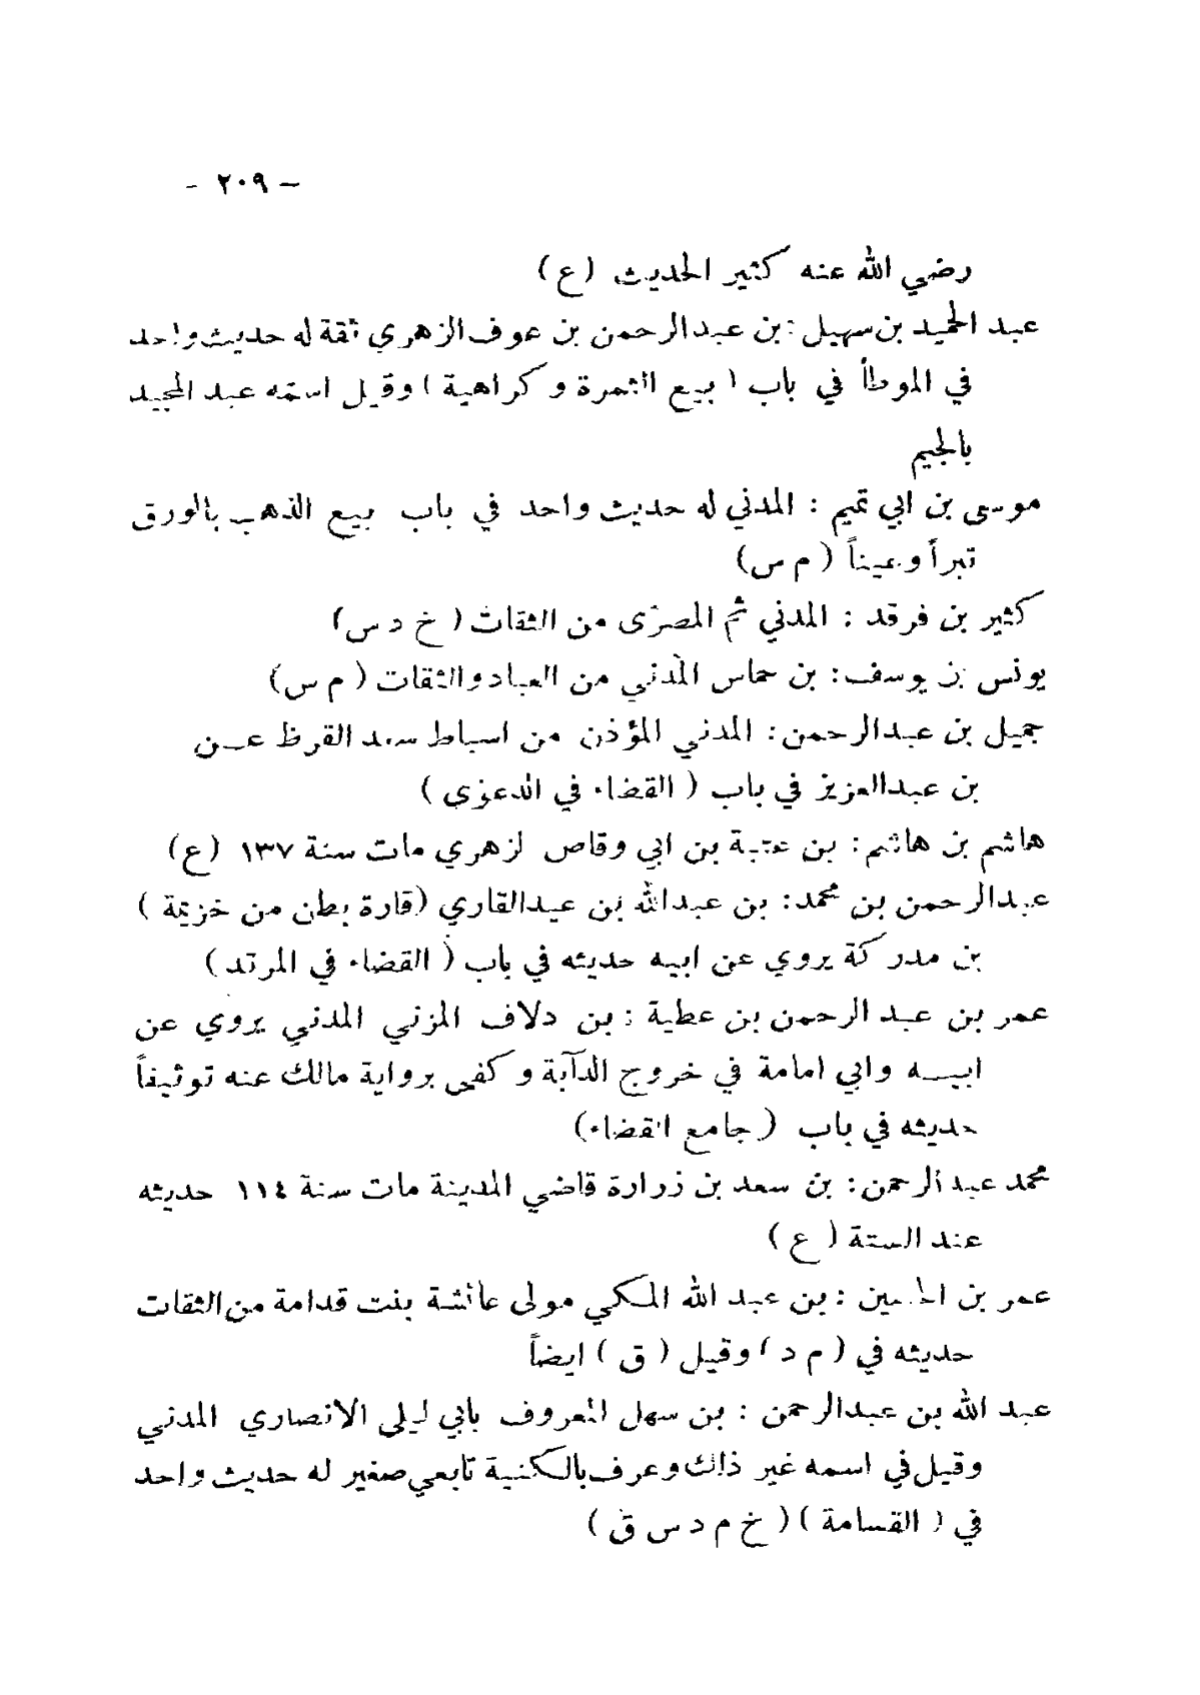 - ٢٠٩ -
رضي الله عنه كثير الحديث (ع)
عبد الحميد بن سهيل : بن عبدالرحمن بن عوف الزهري ثقة له حديث واحد
في الموطأ في باب ( بيع الثمرة وكراهية ) وقيل اسمه عبد المجيد
بالجيم
موسى بن ابي تميم : المدني له حديث واحد في باب بيع الذهب بالورق
تبرأ وعيناً ( م س)
كثير بن فرقد : المدني ثم المصرى من الثقات ( خ د س)
يونس بن يوسف: بن حماس المدني من العباد والثقات ( م س)
جميل بن عبدالرحمن: المدني المؤذن من اسباط سعد القرظ عن
بن عبدالعزيز في باب ( القضاء في الدعوى )
هاشم بن هاشم: بن عتبة بن ابي وقاص لزهري مات سنة ١٣٧ (ع)
عبدالرحمن بن محمد: بن عبدالله بن عبدالقاري (قارة بطن من خزيمة )
بن مدركة يروي عن ابيه حديثه في باب ( القضاء في المرتد )
عمر بن عبد الرحمن بن عطية : بن دلاف المزني المدني يروي عن
ابيه وابي امامة في خروج الدآبة وكفى برواية مالك عنه توثيقاً
حديثه في باب ( جامع القضاء)
محمد عبد الرحمن: بن سعد بن زرارة قاضي المدينة مات سنة ١١٤ حديثه
عند الستة ( ع )
عمر بن الحسين : بن عبد الله المكي مولى عائشة بنت قدامة من الثقات
حديثه في ( م د ) وقيل ( ق ) ايضاً
عبد الله بن عبدالرحمن : بن سهل المعروف بابي ليلى الانصاري المدني
وقيل في اسمه غير ذالك وعرف بالكنية تابعي صغير له حديث واحد
في ( القسامة ) ( خ م د س ق )